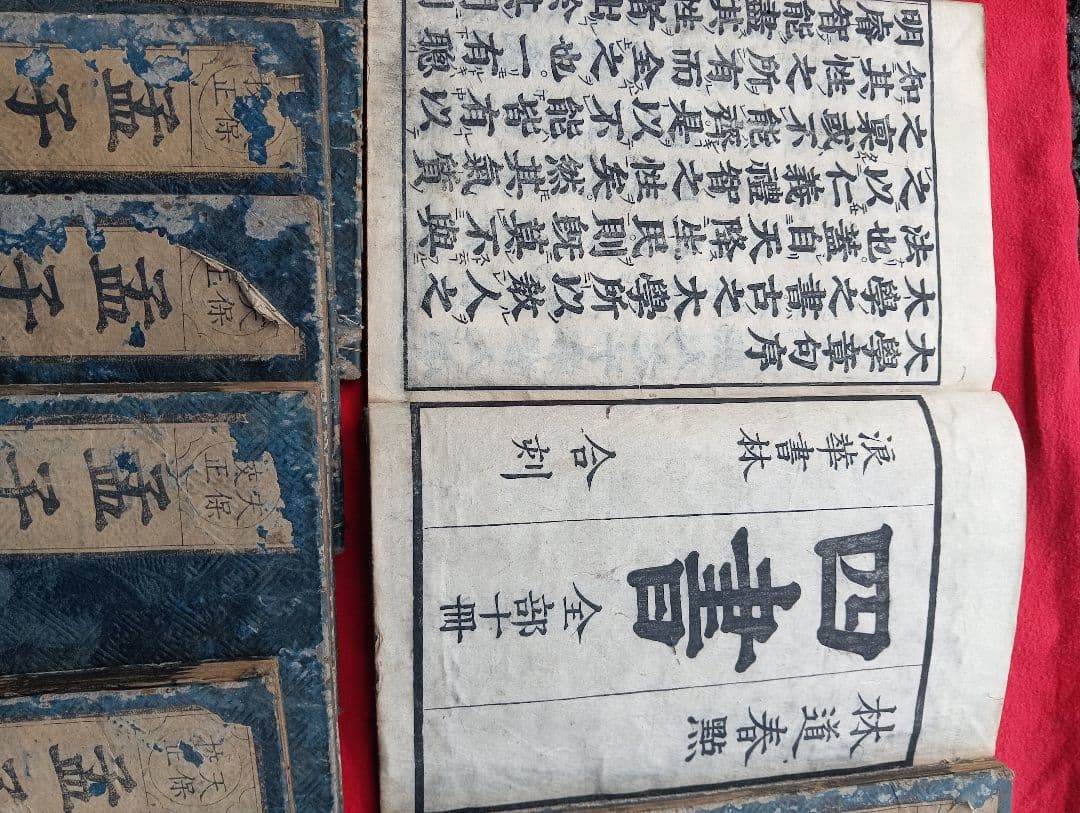 林道春點
四書
全部十冊
浪華書林
合刻
大學章句序
大學之書古之大學所以教人之
法也。蓋自天降生民則既莫不與
之以仁義禮智之性矣然其氣質
之稟或不能齊是以不能皆有以
知其性之所有而全之也。一有聰
明睿智能盡其性者出於其間
天保
孟子
天保改正
孟子
天保
孟子
正保
孟子